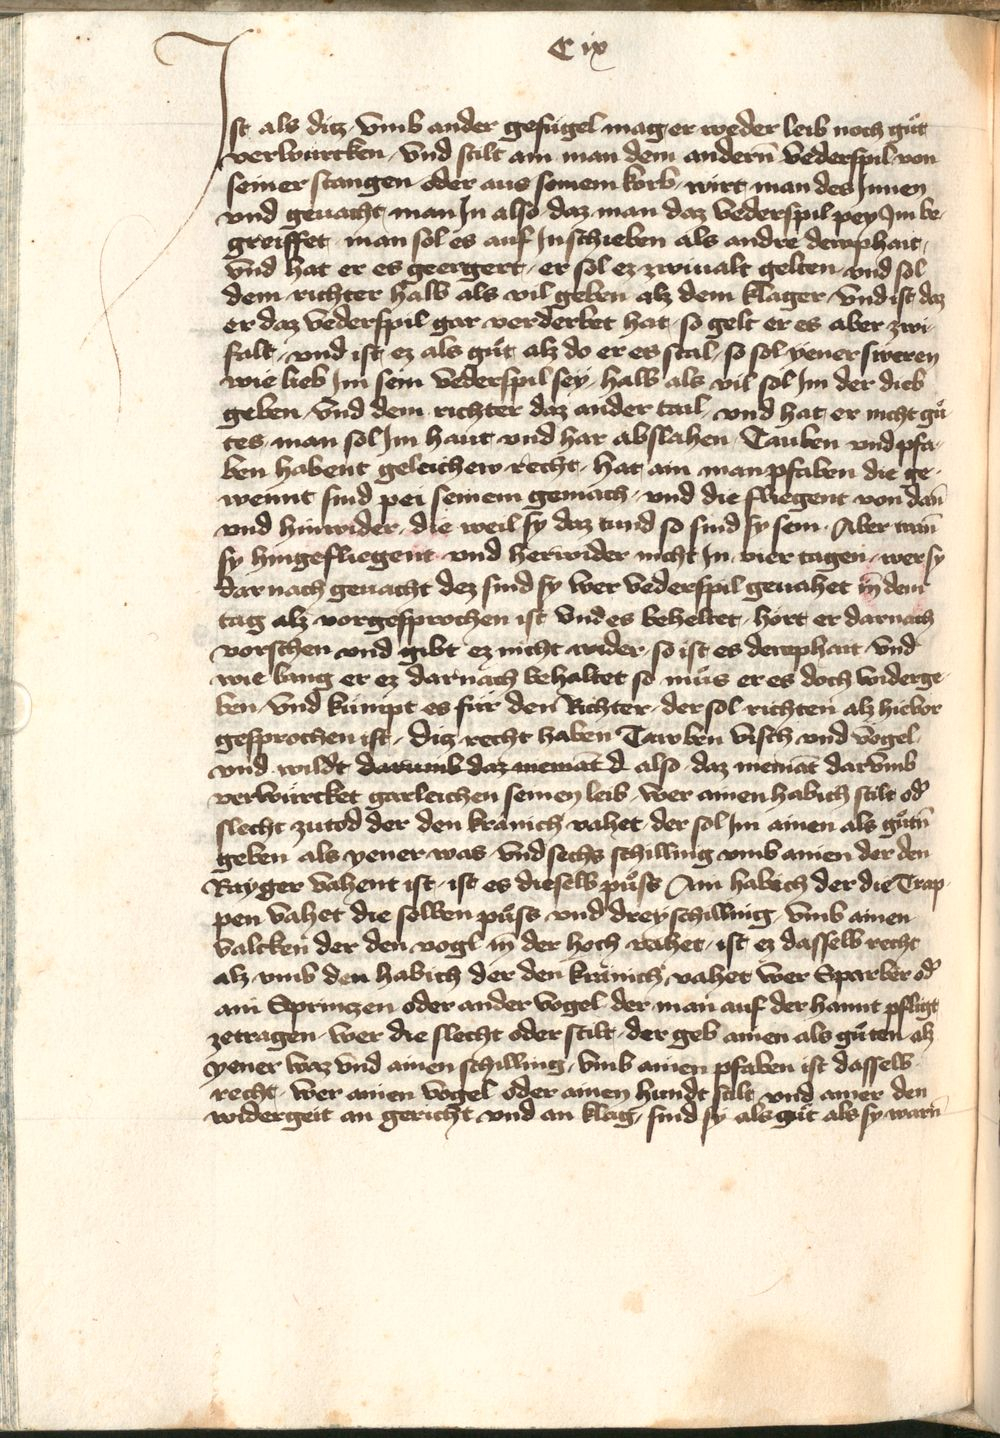 C ix
Ist als ditz / vmb ander gefügel mag er weder leib noch güt
verwürcken / vnd stilt ain man dem andern vederspil von
seiner stangen oder aus seinem korb / wirt man des Innen
vnd geuacht man In also daz man daz vederspil pey Im be-
greiffet man sol es auf In schieben als andre dewphait /
vnd hat er es geergert / er sol ez zwiualt gelten vnd sol
dem richter halb als vil geben alz dem klager / vnd ist daz
er daz vederspil gar verderbet hat so gelt er es aber zwi-
falt / vnd ist ez als güt alz do er es stal / so sol yener sweren
wie lieb Im sein vederspil sey / halb als vil sol Im der dieb
geben / vnd dem richter daz ander tail / vnd hat er nicht gů-
tes / man sol Im haut vnd har abslahen / Tauben vnd pfa-
ben habent geleichew recht / hat ain man pfaben die ge-
wennt sind pei seinem gemach / vnd die fliegent von dan̄
vnd hinwider / die weil sy daz tund so sind sy sein / Aber wan̄
sy hingefliegent vnd herwider nicht In vier tagen / wer sy
darnach geuacht dez sind sy wer vederspil geuahet in dem
tag alz vorgesprochen ist vnd es beheltet / hört er darnach
vorschen vnd gibt ez nicht wider / so ist es dewphait vnd
wie lang er ez darnach behaltet so můs er es doch widerge-
ben / vnd kümpt es für den Richter / der sol richten alz hieuor
gesprochen ist / ditz recht haben Tawben visch vnd vögel
vnd wildt darumb daz niemāt d also daz niemāt darvmb
verwürcket garleichen seinen leib / wer ainen habich stilt od̄
slecht zutod der den kranich vahet / der sol Im ainen als gůtn̄
geben als yener was vnd sechs schilling vmb ainen der den
Rayger vahent ist / ist es dieselb půss Ain habich der die Trap-
pen vahet die selben půss vnd drey schilling / vmb ainen
valcken der den vogl in der höch vahet / ist ez dasselb recht
alz vmb den habich der den kränich vahet wer Sparber od̄
ain Sprinczen oder ander vogel der man auf der hannt pfligt
zetragen / wer die slecht oder stilt / der geb ainen als gůten alz
yener waz vnd ainen schilling / vmb ainen pfaben ist dasselb
recht / wer ainen vogel oder ainen hundt stilt vnd ainer den
widergeit an gericht vnd an klag / sind sy als güt als sy warn̄